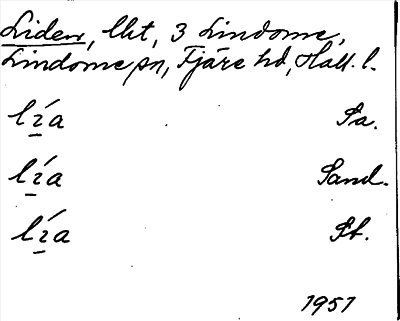 Liden, lht, 3 Lindome,
Lindome sn, Fjäre hd, Hall. l.
lı̱́a Pa.
lı̱́a Sand.
lı̱́a Pt.
1951